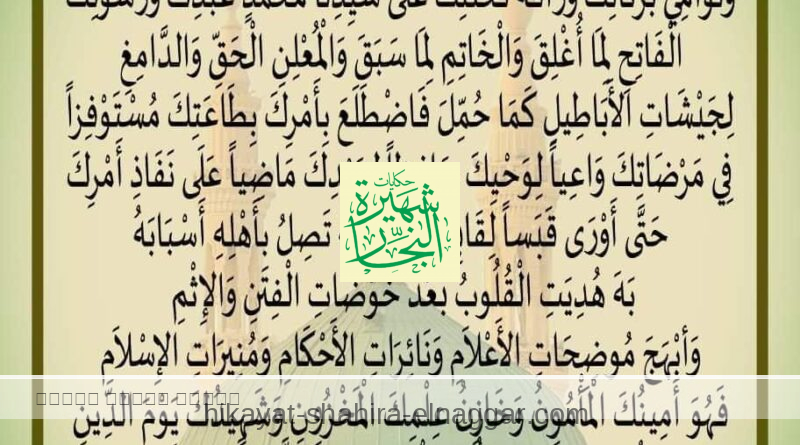 وَنَوَامِيَ بَرَكَاتِكَ وَرَأْفَةَ تَحَنُّنِكَ عَلَى سَيِّدِنَا مُحَمَّدٍ عَبْدِكَ وَرَسُولِكَ
الْفَاتِحِ لِمَا أُغْلِقَ وَالْخَاتِمِ لِمَا سَبَقَ وَالْمُعْلِنِ الْحَقِّ وَالدَّامِغِ
لِجَيْشَاتِ الأَبَاطِيلِ كَمَا حُمِّلَ فَاضْطَلَعَ بِأَمْرِكَ بِطَاعَتِكَ مُسْتَوْفِزاً
فِي مَرْضَاتِكَ وَاعِياً لِوَحْيِكَ مَاضِياً عَلَى نَفَاذِ أَمْرِكَ
حَتَّى أَوْرَى قَبَساً تَصِلُ بِأَهْلِهِ أَسْبَابَهُ
بَهَ هُدِيَتِ الْقُلُوبُ بَعْدَ خَوْضَاتِ الْفِتَنِ وَالإِثْمِ
وَأَبْهَجَ مُوضِحَاتِ الأَعْلاَمِ وَنَائِرَاتِ الأَحْكَامِ وَمُنِيرَاتِ الإِسْلاَمِ
فَهُوَ أَمِينُكَ الْمَأْمُونُ وَخَازِنُ عِلْمِكَ الْمَخْزُونِ وَشَهِيدُكَ يَوْمَ الدِّينِ
حكايات
شهيرة
النجار
hikayat-shahira-elnaggar.com